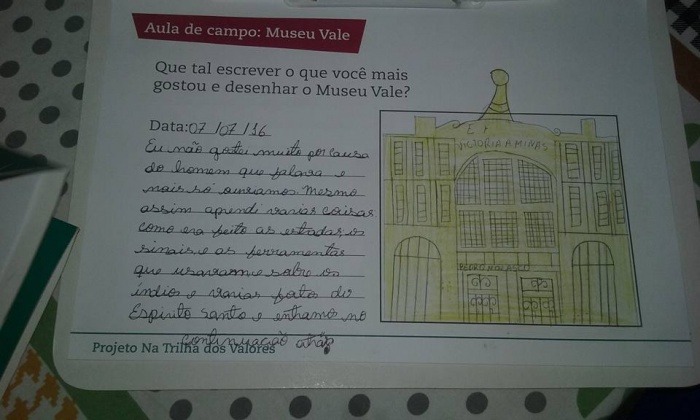 Aula de campo: Museu Vale
Que tal escrever o que você mais
gostou e desenhar o Museu Vale?
Data: 07/07/16
Eu não gostei muito por causa
do homem que falava e
nois só ouviamos. Mesmo
assim aprendi varias coisas
como era feito as estadas, os
sinais e os ferramentas
que usavam e sobre os
índios e varias fotos do
Espirito Santo e entramos no
continuação atrás
Projeto Na Trilha dos Valores
E. F.
VICTORIA A MINAS
PEDRO NOLASCO